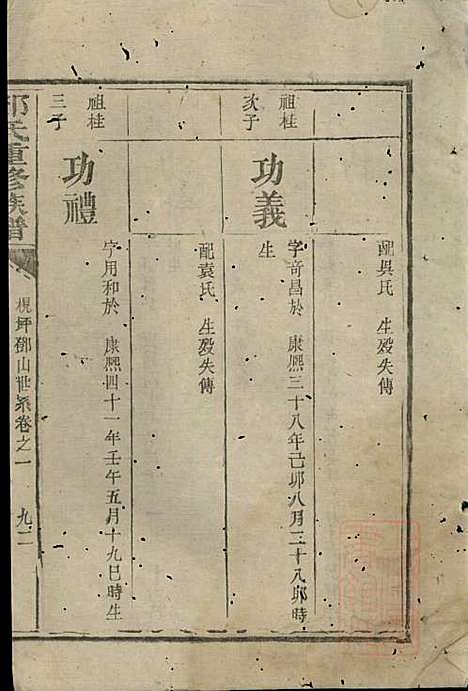 配吳氏 生歿失傳
祖桂
次子
功義
字奇昌於 康熙三十八年己卯八月三十八卯時
生
配袁氏 生歿失傳
祖桂
三子
功禮
字用和於 康熙四十一年壬午五月十九巳時生
氏重修族譜
坪鄧山世系卷之一
九二